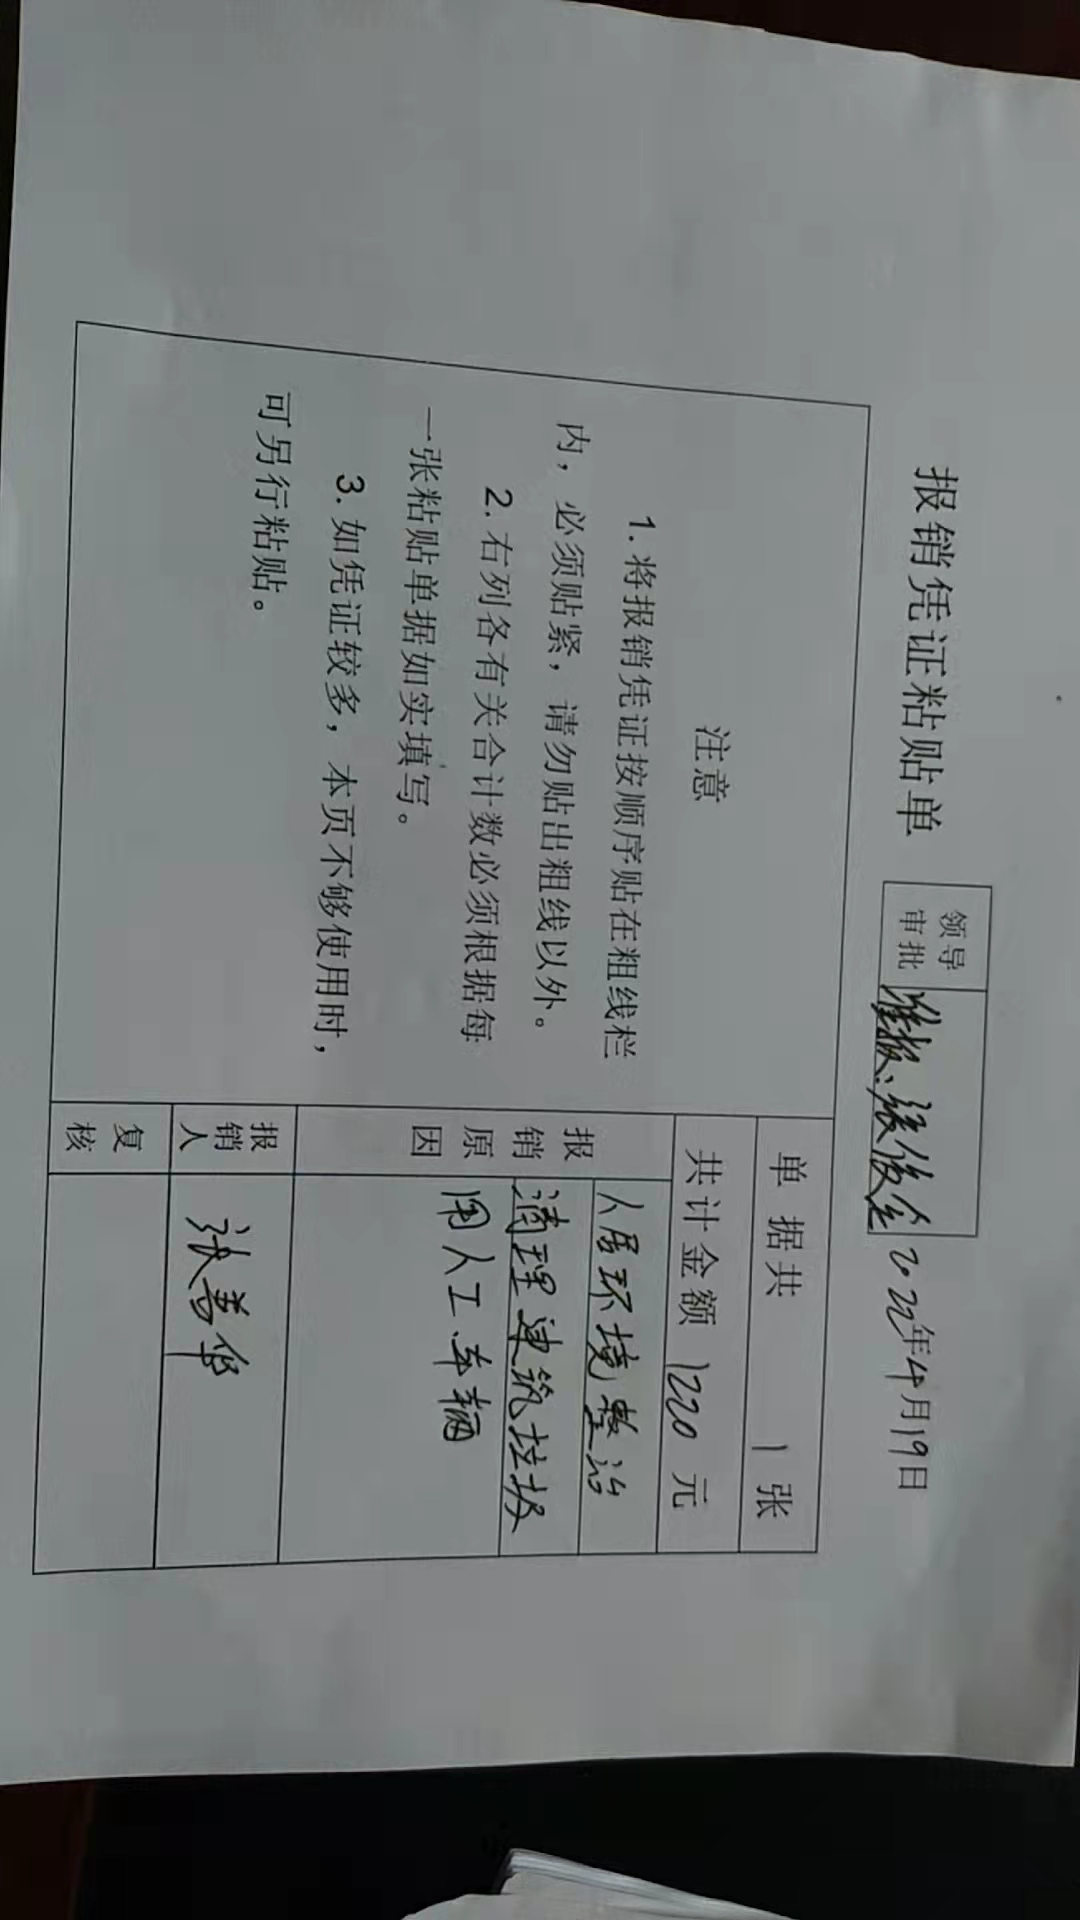 报销凭证粘贴单
领导
审批
准报.张俊全
2022年4月19日
注意
1.将报销凭证按顺序贴在粗线栏
内，必须贴紧，请勿贴出粗线以外。
2.右列各有关合计数必须根据每
一张粘贴单据如实填写。
3.如凭证较多，本页不够使用时，
可另行粘贴。
单据共 1 张
共计金额 1220 元
报销原因
人居环境整治
清理建筑垃圾
用人工车辆
报销人
张善华
复核